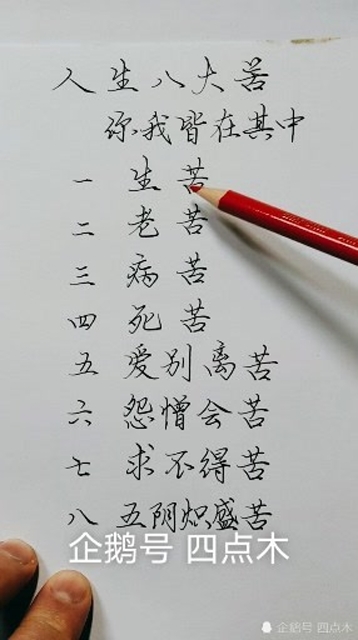 人生八大苦
你我皆在其中
一 生苦
二 老苦
三 病苦
四 死苦
五 爱别离苦
六 怨憎会苦
七 求不得苦
八 五阴炽盛苦
企鹅号 四点木
企鹅号 四点木